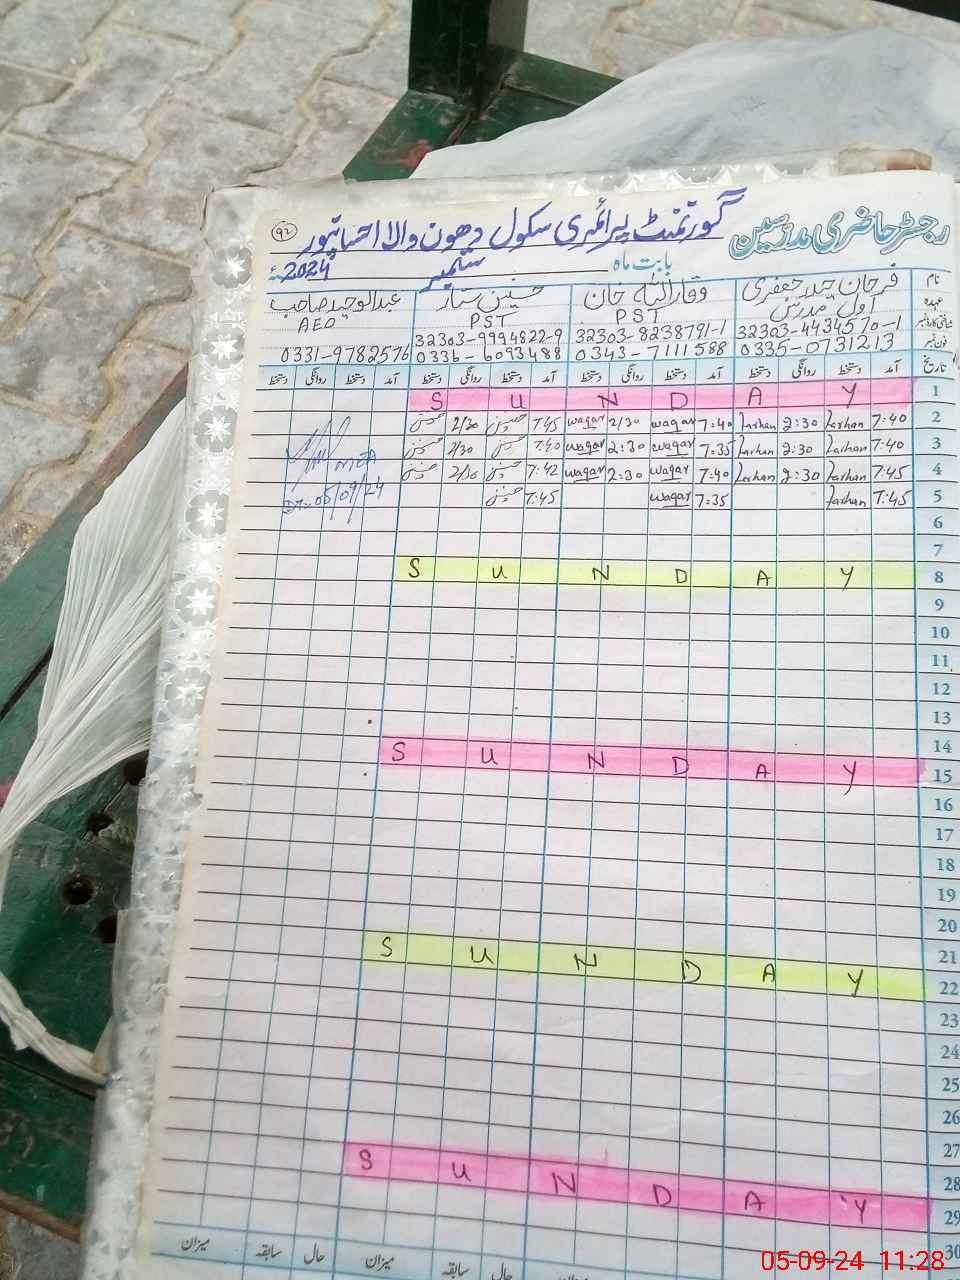 رجسٹر حاضری مدرسین گورنمنٹ پرائمری سکول دھون والا احسانپور
92
بابت ماہ ستمبر 2024ء
نام فرحان حیدر جعفری وقار اللہ خان حسنین ستار عبدالوحید صاحب
عہدہ اول مدرس PST PST AEO
شناختی کارڈ نمبر 32303-4434570-1 32303-8238791-1 32303-9994822-9
فون نمبر 0335-0731213 0343-7111588 0336-6093488 0331-9782576
تاریخ آمد دستخط روانگی دستخط آمد دستخط روانگی دستخط آمد دستخط روانگی دستخط آمد دستخط روانگی دستخط
1 S U N D A Y
2 7:40 Farhan 2:30 Farhan 7:40 waqar 2/30 waqar 7:45 حسنین 2/30 حسنین
3 7:40 Farhan 2:30 Farhan 7:35 waqar 2:30 waqar 7:40 حسنین 2/30 حسنین
4 7:45 Farhan 2:30 Farhan 7:40 waqar 2:30 waqar 7:42 حسنین 2/30 حسنین
5 7:45 Farhan 7:35 waqar 7:45 حسنین
Dt:- 05/09/24
6
7
8 S U N D A Y
9
10
11
12
13
14
15 S U N D A Y
16
17
18
19
20
21
22 S U N D A Y
23
24
25
26
27
28
29 S U N D A Y
30
میزان حال سابقہ میزان حال سابقہ میزان
05-09-24 11:28